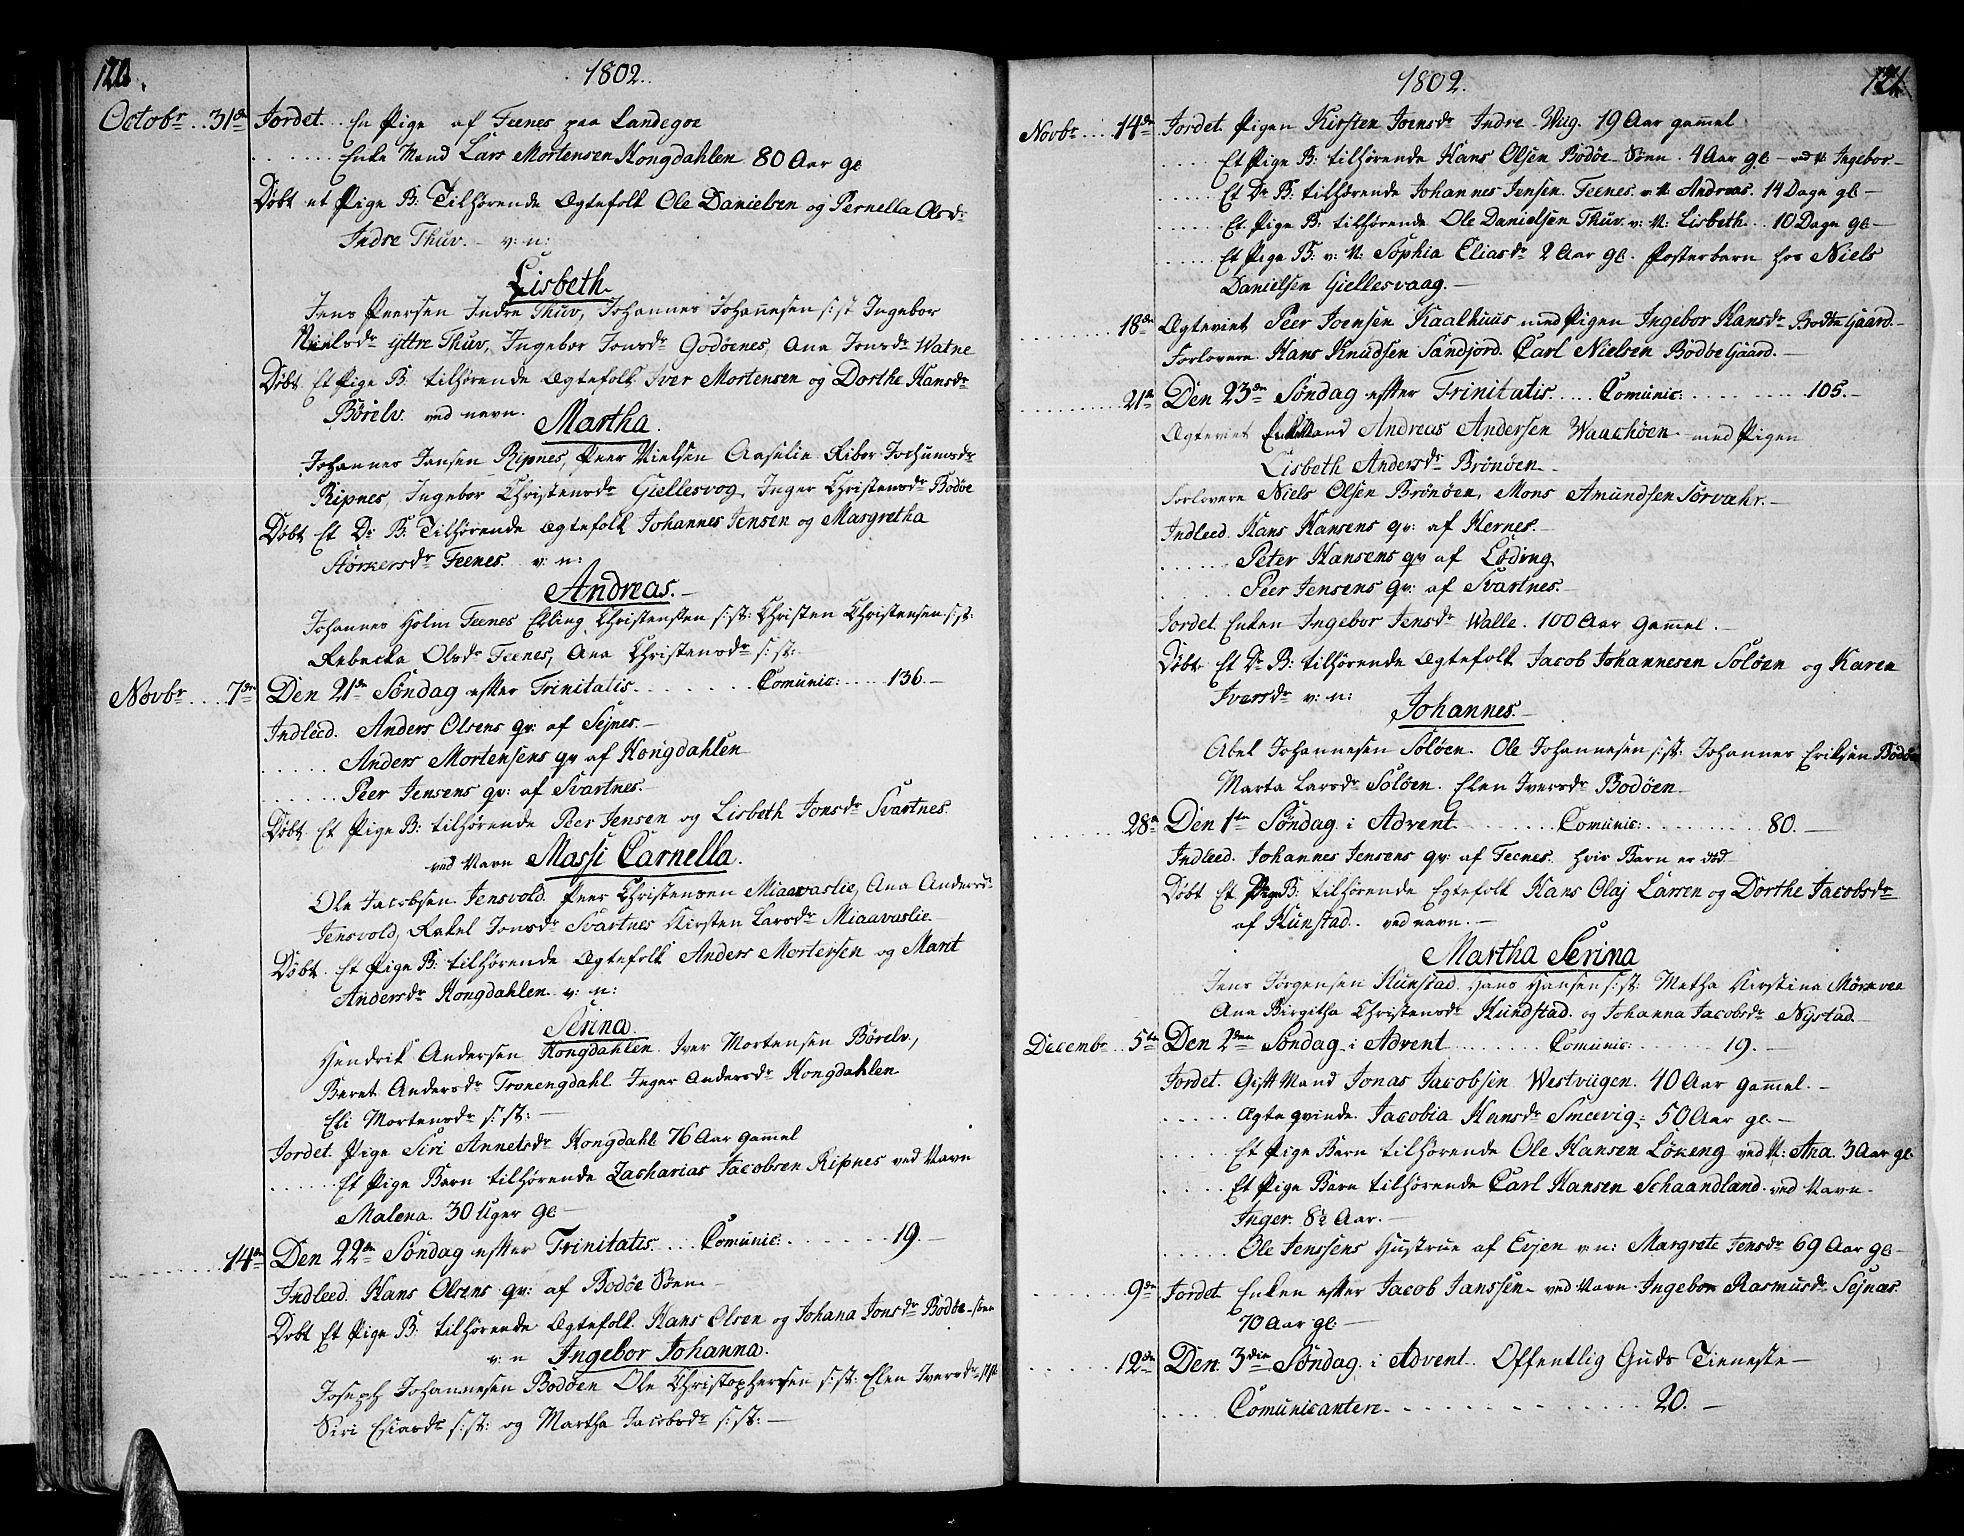 120.
1802.
Octobr 31de Jordet En Pige af Feenes paa Landegoe
Enke Mand Lars Mortensen Hongdahlen 80 Aar gl
Døbt et Pige B: Tilhørende Ægtefolk Ole Danielsen og Pernella Olsdr
Indre Thuv. v: n:
Lisbeth
Jens Peersen Indre Thuv, Johannes Johannesen s: st Ingebor
Nielsdr yttre Thuv, Ingebor Jonsdr Godøenes, Ana Jonsdr Watne
Døbt Et Pige B: tilhørende Ægtefolk Iver Mortensen og Dorthe Hansdr
Børelv ved navn.
Martha.
Johannes Jansen Ripnes, Peer Nielsen Aaselie Riber Jochumsdr
Ripnes, Ingebor Christensdr Giellesvog, Inger Christensdr Bodøe
Døbt Et Dr B: Tilhørende Ægtefolk Johannes Jensen og Margretha
Størkersdr Feenes. v: n:
Andreas.
Johannes Holm Feenes Elling Christensen s: st: Christen Christensen s: st:
Rebecka Olsdr Feenes, Ana Christensdr s: st:
Novbr 7de Den 21de Søndag efter Trinitatis Comunic: 136.
Indleed. Anders Olsens qv: af Sejnes.
Anders Mortensens qv af Hongdahlen
Peer Jensens qv: af Svartnes.
Døbt Et Pige B: tilhørende Peer Jensen og Lisbeth Jonsdr Svartnes
ved Navn Massi Carnella.
Ole Jacobsen Jensvold. Peer Christensen Miaavaslie, Ana Andersdr
Jensvold, Rakel Jonsdr Svartnes Kirsten Larsdr Miaavaslie
Døbt Et Pige B: tilhørende Ægtefolk Anders Mortensen og Marit
Andersdr Hongdahlen v: n:
Serina.
Hendrik Andersen Hongdahlen. Iver Mortensen Børelv,
Beret Andersdr Tronengdahl. Inger Andersdr Hongdahlen
Eli Mortensdr s: st:
Jordet Pige Siri Annetsdr Hongdahl 76 Aar gammel
Et Pige Barn tilhørende Zacharias Jacobsen Ripnes ved Navn
Malena. 30 Uger gl
14de Den 22de Søndag efter Trinitatis. Comunic: 19.
Indleed. Hans Olsens qv: af Bodøe Søen
Døbt Et Pige B: tilhørende Ægtefolk Hans Olsen og Johana Jonsdr Bodøe-søen
v: n Ingebor Johanna.
Joseph Johannesen Bodøen Ole Christophersen s: st: Elen Iversdr s: st:
Siri Esiasdr s: st: og Martha Jacobsdr s: st:
1802.
121.
Novbr 14de Jordet Pigen Kirsten Joensdr Indre Wiig. 19 Aar gammel
Et Pige B: tilhørende Hans Olsen Bodøe Søen. 4 Aar gl ved N: Ingebor
Et Dr B: tilhørende Johannes Jensen Feenes v: N Andreas. 14 Dage gl
Et Pige B: tilhørende Ole Danielsen Thuv v: N: Lisbeth 10 Dage gl
Et Pige B: v: N: Sophia Eliasdr 2 Aar gl. Posterbarn hos Niels
Danielsen Giellesvaag.
18de Ægteviet Peer Joensen Kaalhuus med Pigen Ingebor Hansdr Bodbe Gaard.
Forlovere Hans Knudsen Sandjord. Carl Nielsen Bodbe Gaard.
21de Den 23de Søndag efter Trinitatis Comunic: 105.
Ægteviet Enke Mand Andreas Andersen Waachøen med Pigen
Lisbeth Andersdr Brønøen
Forlovere Niels Olsen Brønøen, Mons Amundsen Sørvahr.
Indleed. Hans Hansens qv: af Hernes.
Peter Hansens qv af Løding
Peer Jensens qv: af Svartnes.
Jordet Enken Ingebor Jensdr Walle. 100 Aar gammel.
Døbt Et Dr B: tilhørende Ægtefolk Jacob Johannesen Soløen og Karen
Iversdr v: n:
Johannes.
Abel Johannesen Soløen. Ole Johannesen s: st: Johannes Eriksen Bodøen
Marta Larsdr Soløen. Elen Iversdr Bodøen
28de Den 1ste Søndag i Advent Comunic: 80.
Indleed. Johannes Jensens qv: af Feenes. hvis Barn er død
Døbt Et Pige B: tilhørende Egtefolk Hans Olaj Larsen og Dorthe Jacobsdr
af Hunstad. ved navn.
Martha Serina
Jens Jørgensen Hunstad. Hans Hansen s: st: Metha Kirstina Mørkvee
Ana Birgitha Christensdr Hundstad og Johanna Jacobsdr Nystad
Decembr 5te Den 2den Søndag i Advent Comunic: 19.
Jordet. Gift Mand Jonas Jacobsen Westviigen. 40 Aar gammel.
Ægte qvinde. Jacobia Hansdr Smeevig. 50 Aar gl.
Et Pige Barn tilhørende Ole Hansen Løkeng ved N: Ana. 3 Aar gl
Et Pige Barn tilhørende Carl Hansen Schaandland ved Navn
Inger. 8½ Aar.
Ole Jenssens Hustrue af Evjen v: n: Margrete Jensdr 69 Aar gl
9de Jordet Enken efter Jacob Janssen ved Navn Ingebor Rasmusdr Sejnæs
70 Aar gl
12de Den 3die Søndag i Advent. Offentlig Guds Tieneste
Comunicantere 20.